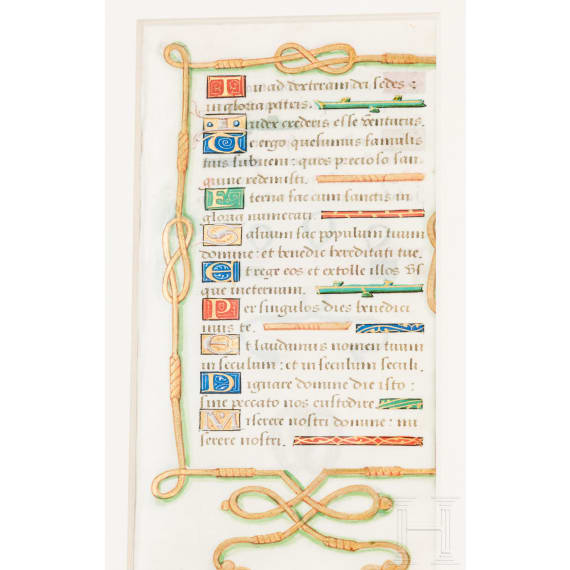 Tu ad dexteram dei sedes:
in gloria patris.
Iudex crederis esse venturus.
Te ergo quesumus famulis
tuis subveni: quos precioso san
guine redemisti.
Eterna fac cum sanctis in
gloria numerari.
Salvum fac populum tuum
domine: et benedic hereditati tue.
Et rege eos et extolle illos us
que ineternum.
Per singulos dies benedici
mus te.
Et laudamus nomen tuum
in seculum: et in seculum seculi.
Dignare domine die isto:
sine peccato nos custodire.
Miserere nostri domine: mi
serere nostri.
H